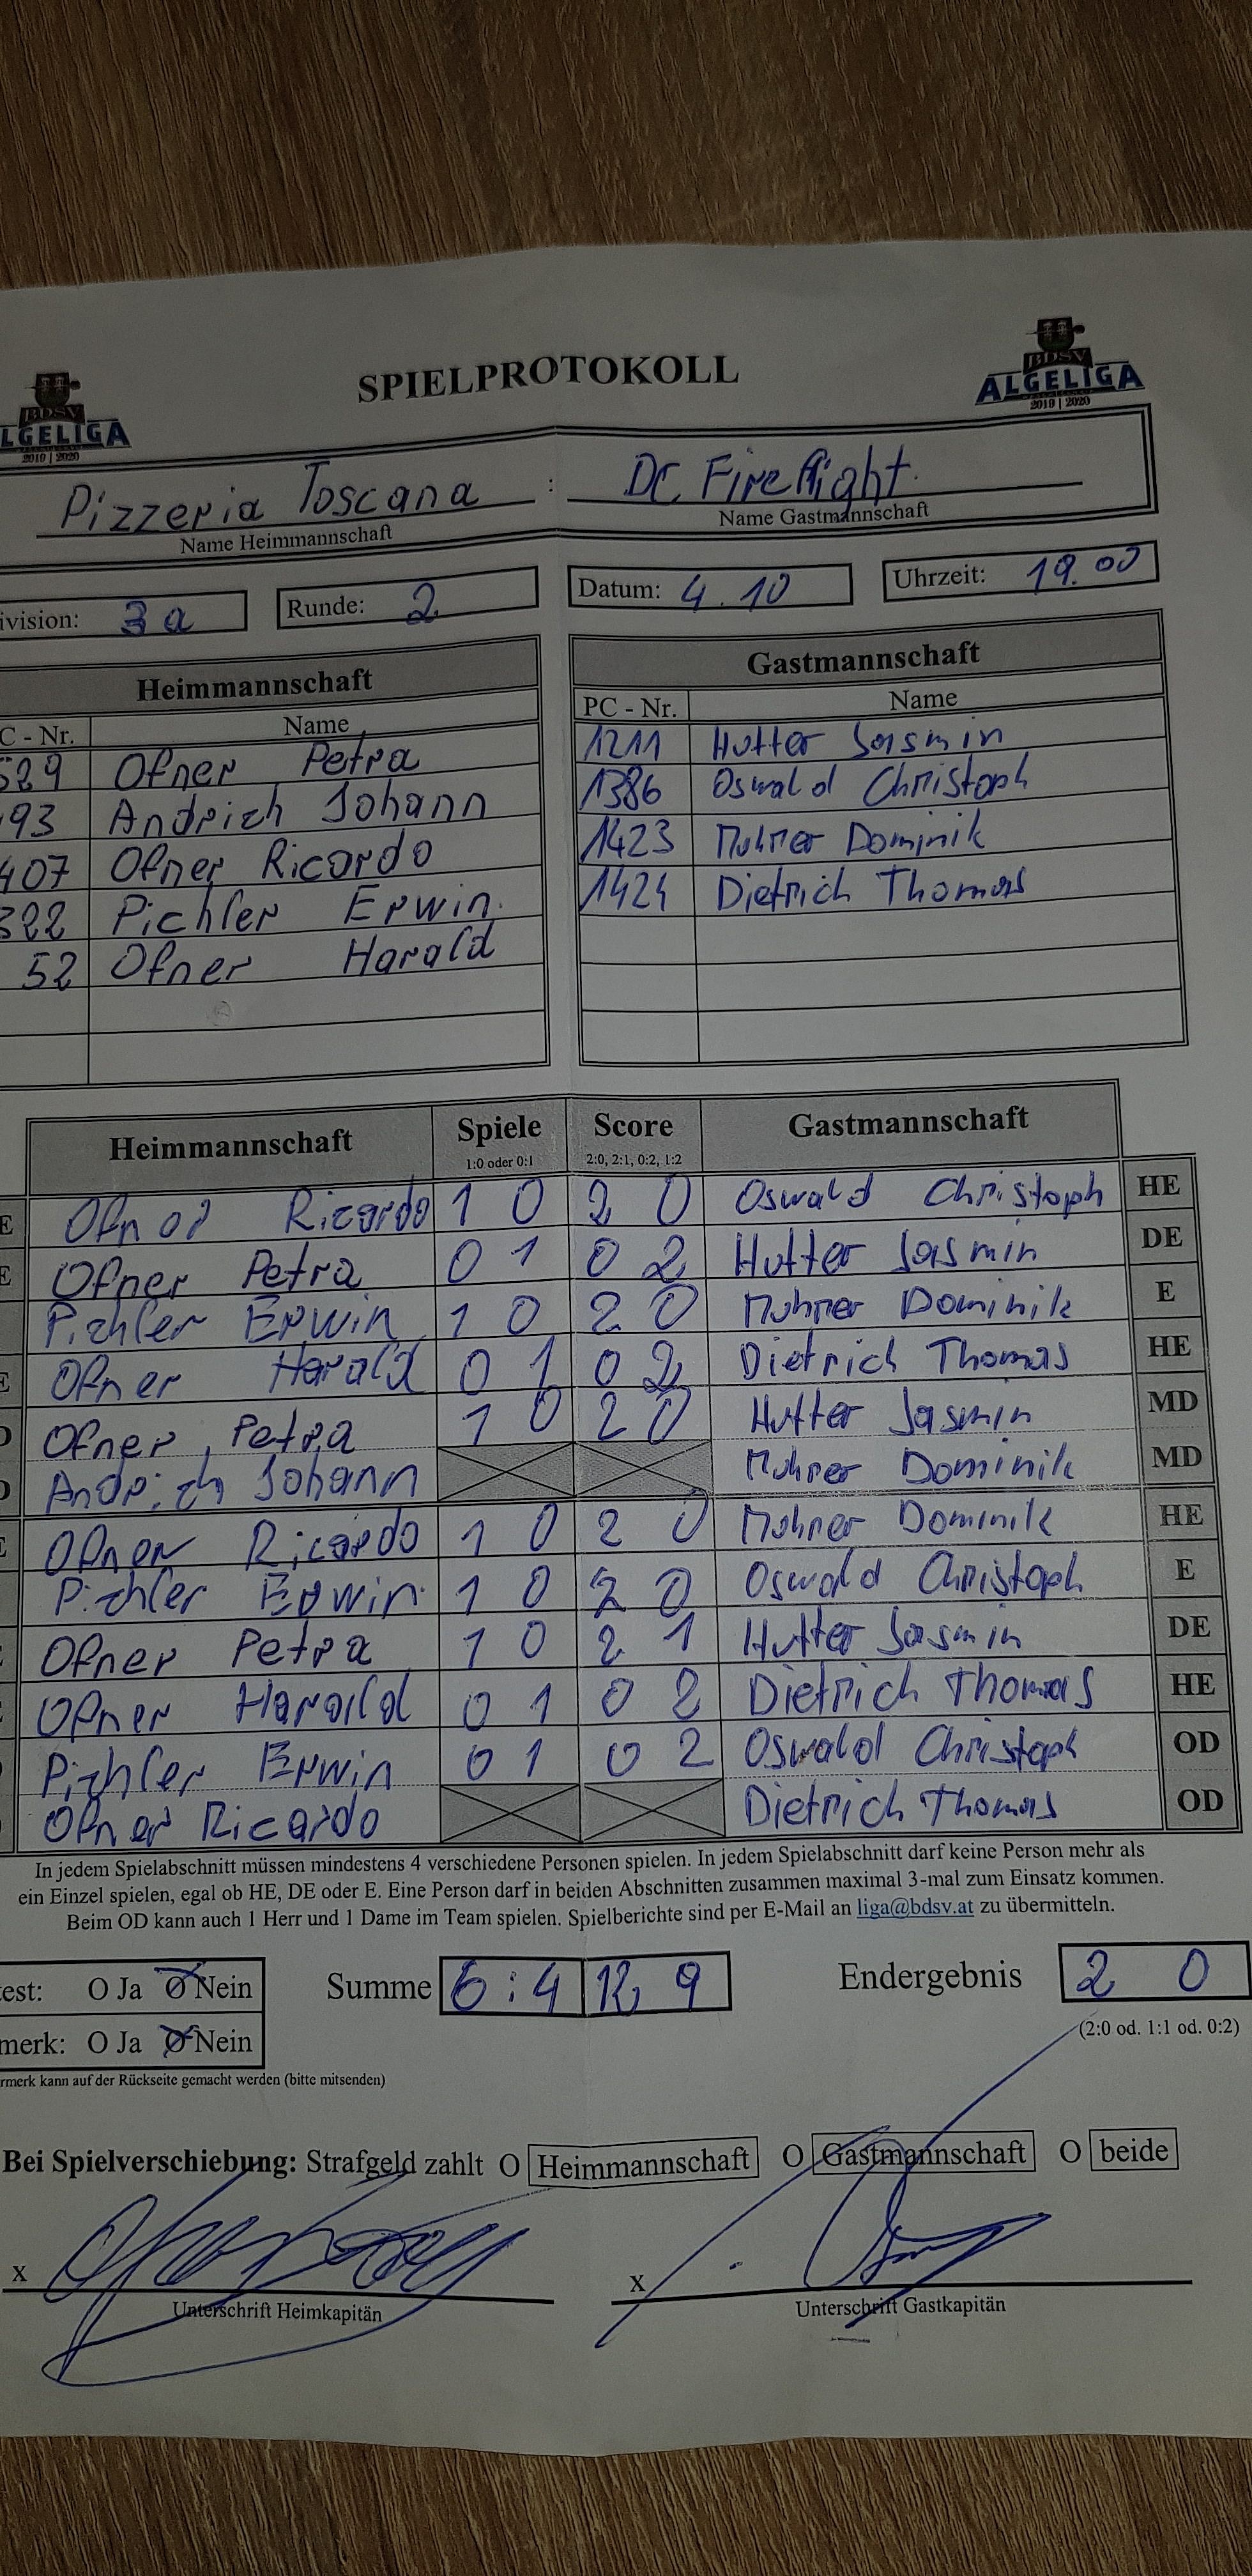 BDSV
LGELIGA
2019 | 2020
SPIELPROTOKOLL
BDSV
ALGELIGA
2019 | 2020
Pizzeria Toscana : DC Firefight
Name Heimmannschaft Name Gastmannschaft
ivision: 3a Runde: 2 Datum: 4.10 Uhrzeit: 19.00
Heimmannschaft Gastmannschaft
C - Nr. Name PC - Nr. Name
529 Ofner Petra 1211 Hutter Jasmin
93 Andrich Johann 1386 Oswald Christoph
407 Ofner Ricardo 1423 Dominik
322 Pichler Erwin 1424 Dietrich Thomas
52 Ofner Harald
Heimmannschaft Spiele Score Gastmannschaft
1:0 oder 0:1 2:0, 2:1, 0:2, 1:2
E Ofner Ricardo 1 0 2 0 Oswald Christoph HE
E Ofner Petra 0 1 0 2 Hutter Jasmin DE
Pichler Erwin 1 0 2 0 Dominik E
E Ofner Harald 0 1 0 2 Dietrich Thomas HE
D Ofner Petra 1 0 2 0 Hutter Jasmin MD
D Andrich Johann Dominik MD
E Ofner Ricardo 1 0 2 0 Dominik HE
Pichler Erwin 1 0 2 0 Oswald Christoph E
E Ofner Petra 1 0 2 1 Hutter Jasmin DE
Ofner Harald 0 1 0 2 Dietrich Thomas HE
Pichler Erwin 0 1 0 2 Oswald Christoph OD
Ofner Ricardo Dietrich Thomas OD
In jedem Spielabschnitt müssen mindestens 4 verschiedene Personen spielen. In jedem Spielabschnitt darf keine Person mehr als
ein Einzel spielen, egal ob HE, DE oder E. Eine Person darf in beiden Abschnitten zusammen maximal 3-mal zum Einsatz kommen.
Beim OD kann auch 1 Herr und 1 Dame im Team spielen. Spielberichte sind per E-Mail an liga@bdsv.at zu übermitteln.
est: O Ja O Nein Summe 6:4 12 9 Endergebnis 2 0
merk: O Ja O Nein (2:0 od. 1:1 od. 0:2)
rmerk kann auf der Rückseite gemacht werden (bitte mitsenden)
Bei Spielverschiebung: Strafgeld zahlt O Heimmannschaft O Gastmannschaft O beide
x x
Unterschrift Heimkapitän Unterschrift Gastkapitän